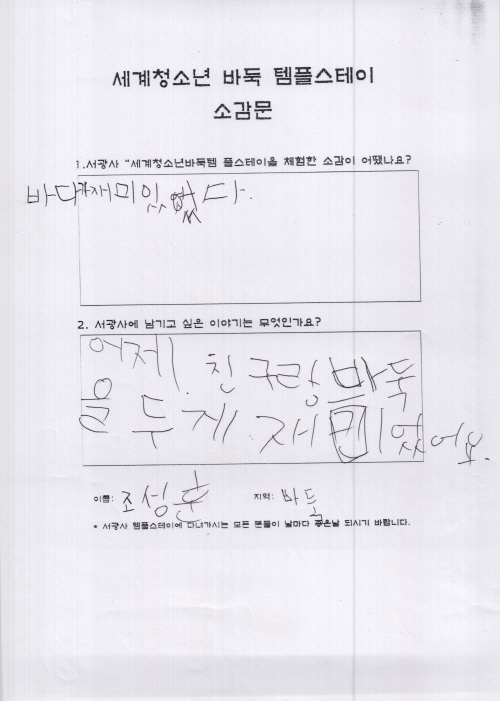 세계청소년 바둑 템플스테이
소감문
1.서광사 "세계청소년바둑템 플스테이을 체험한 소감이 어땠나요?
바다가재미있었다.
2. 서광사에 남기고 싶은 이야기는 무엇인가요?
어제 친구랑 바둑
을 두게 재미있어요.
이름: 조성훈 지역: 바둑
* 서광사 템플스테이에 다녀가시는 모든 분들이 날마다 좋은날 되시기 바랍니다.